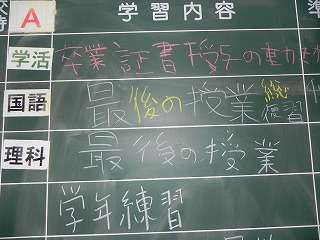 A 学習内容
学活 卒業証書授与の動
国語 最後の授業 総練習
理科 最後の授業
学年練習